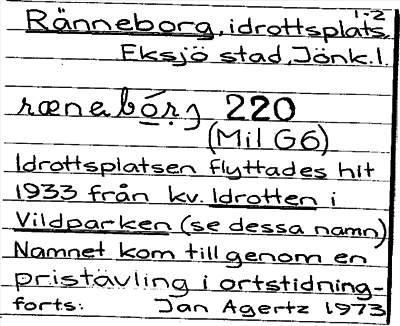 1-2
Ränneborg, idrottsplats,
Eksjö stad, Jönk.l.
rænebórj 220
(Mil G6)
Idrottsplatsen flyttades hit
1933 från kv. Idrotten i
Vildparken (se dessa namn)
Namnet kom till genom en
pristävling i ortstidning-
forts: Jan Agertz 1973